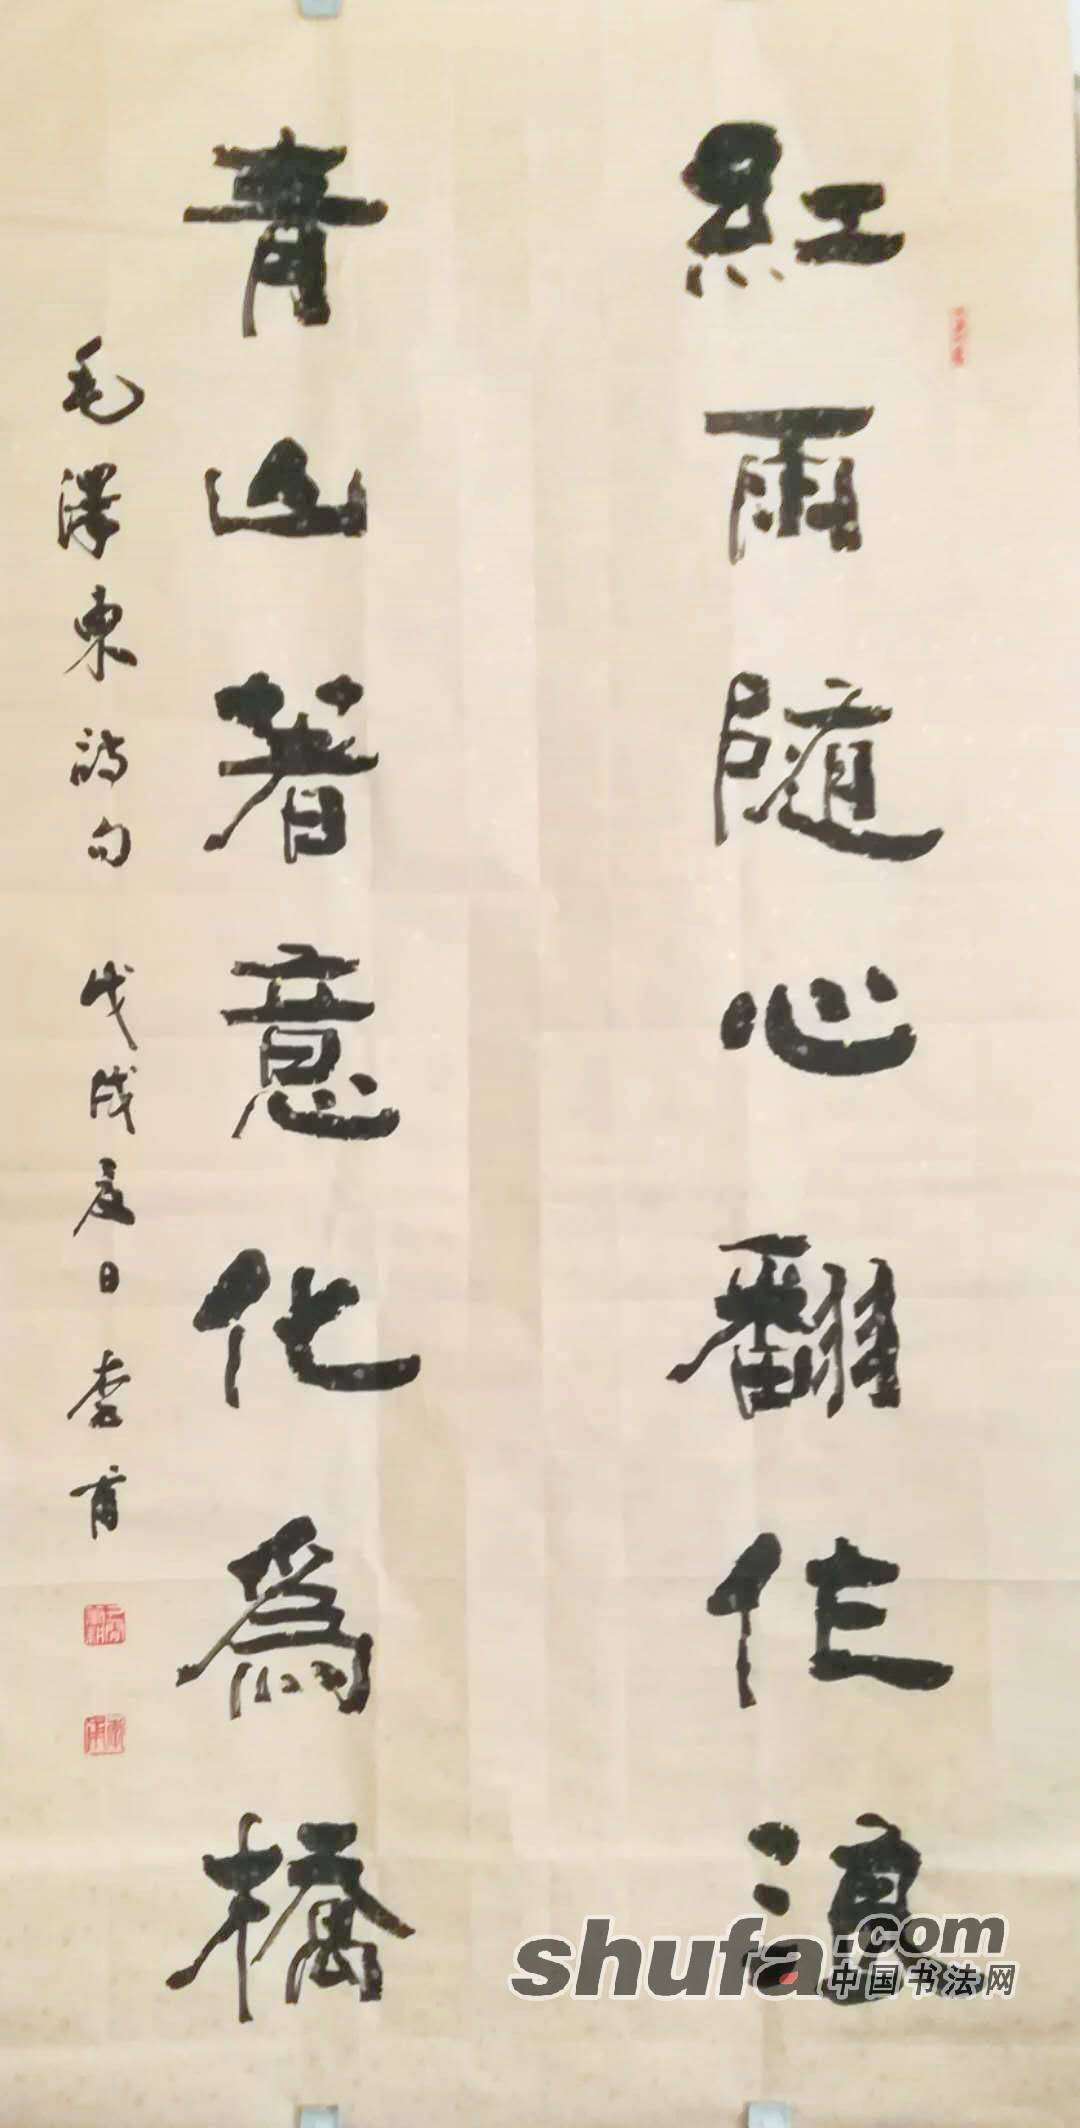 紅雨隨心翻作浪
青山著意化為橋
毛澤東詩句 戊戌夏日 李育
shufa.com
中国书法网